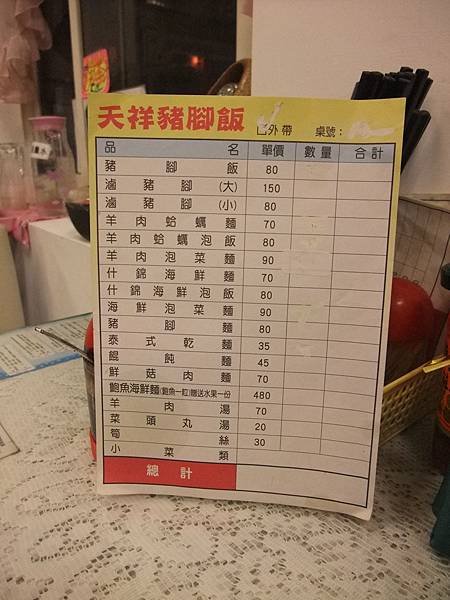 天祥豬腳飯
外帶 桌號：
品名 單價 數量 合計
豬腳飯 80
滷豬腳(大) 150
滷豬腳(小) 80
羊肉蛤蠣麵 70
羊肉蛤蠣泡飯 80
羊肉泡菜麵 90
什錦海鮮麵 70
什錦海鮮泡飯 80
海鮮泡菜麵 90
豬腳麵 80
泰式乾麵 35
餛飩麵 45
鮮菇肉麵 70
鮑魚海鮮麵(鮑魚一粒)贈送水果一份 480
羊肉湯 70
菜頭丸湯 20
筍絲 30
小菜類
總計